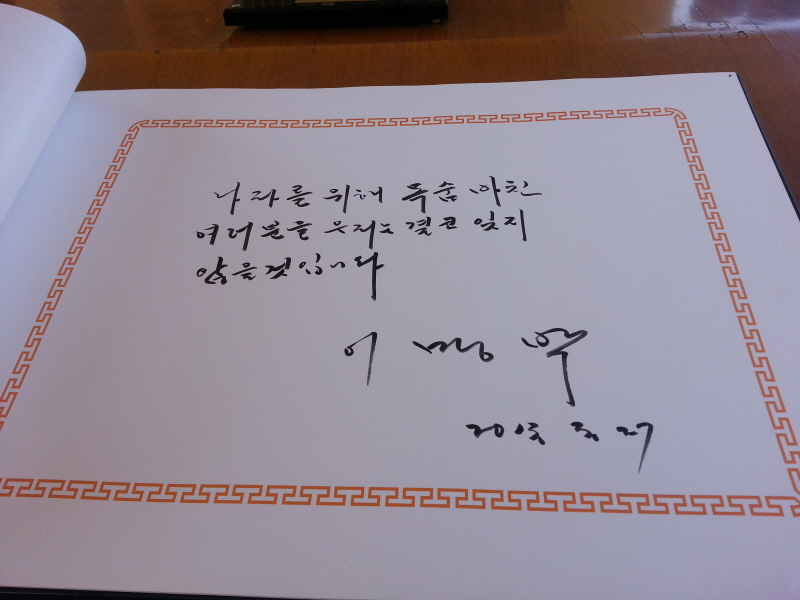 나라를 위해 목숨 바친
여러분을 우리는 결코 잊지
않을것입니다
이 명 박
27